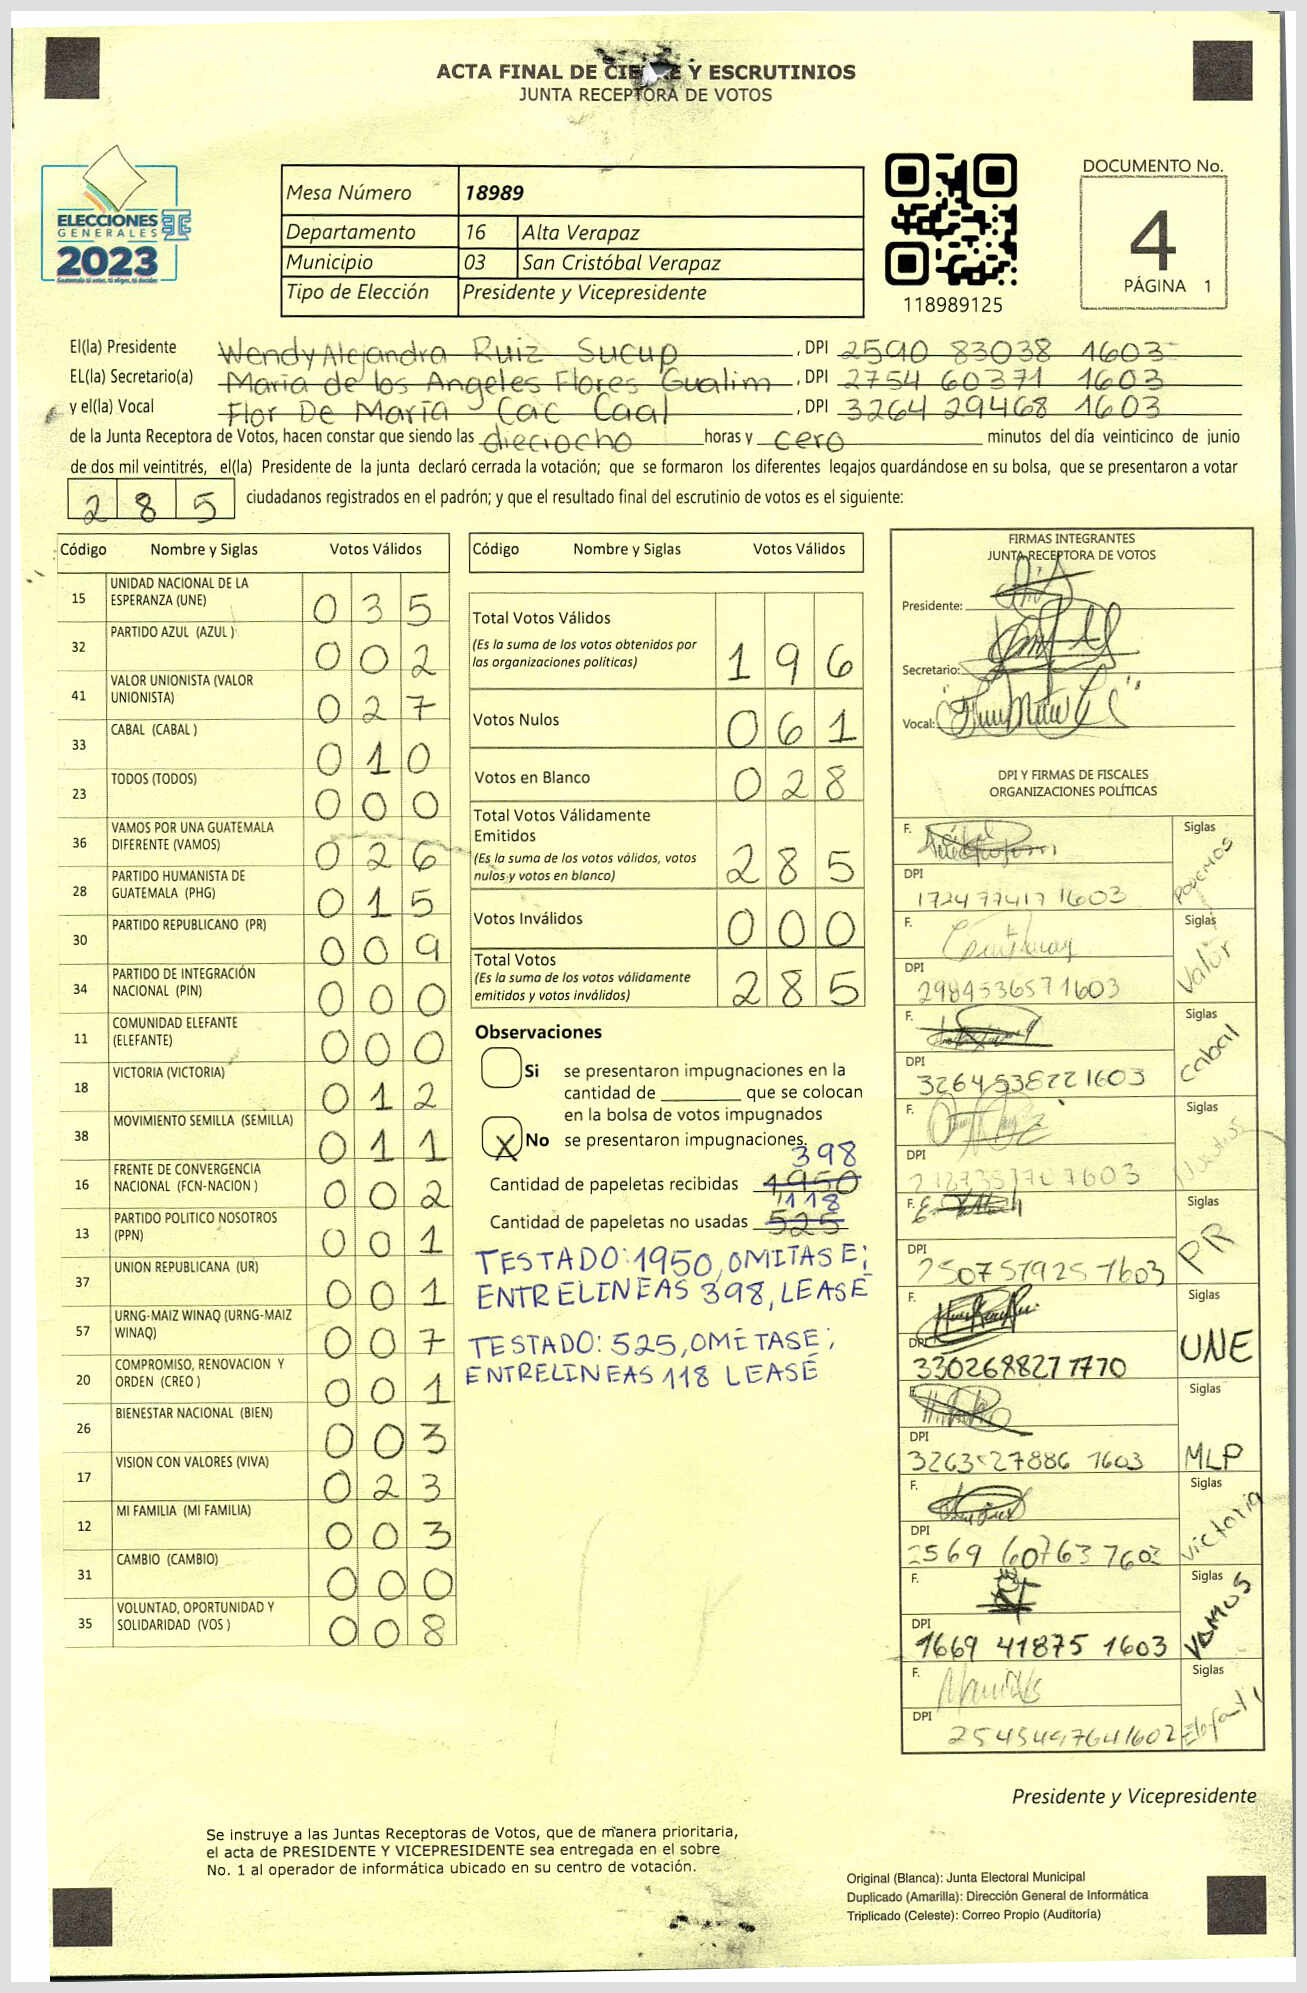 ACTA FINAL DE CIERRE Y ESCRUTINIOS
JUNTA RECEPTORA DE VOTOS
ELECCIONES
GENERALES
2023
Mesa Número 18989
Departamento 16 Alta Verapaz
Municipio 03 San Cristóbal Verapaz
Tipo de Elección Presidente y Vicepresidente
118989125
DOCUMENTO No.
4
PÁGINA 1
El(la) Presidente Wendy Alejandra Ruiz Sucup, DPI 2590 83038 1603
EL(la) Secretario(a) Maria de los Angeles Flores Gualim, DPI 2754 60371 1603
y el(la) Vocal Flor De María Cac Caal, DPI 3264 29468 1603
de la Junta Receptora de Votos, hacen constar que siendo las dieciocho horas y cero minutos del día veinticinco de junio
de dos mil veintitrés, el(la) Presidente de la junta declaró cerrada la votación; que se formaron los diferentes legajos guardándose en su bolsa, que se presentaron a votar
285 ciudadanos registrados en el padrón; y que el resultado final del escrutinio de votos es el siguiente:
Código Nombre y Siglas Votos Válidos
15 UNIDAD NACIONAL DE LA ESPERANZA (UNE) 035
32 PARTIDO AZUL (AZUL ) 002
41 VALOR UNIONISTA (VALOR UNIONISTA) 027
33 CABAL (CABAL ) 010
23 TODOS (TODOS) 000
36 VAMOS POR UNA GUATEMALA DIFERENTE (VAMOS) 026
28 PARTIDO HUMANISTA DE GUATEMALA (PHG) 015
30 PARTIDO REPUBLICANO (PR) 009
34 PARTIDO DE INTEGRACIÓN NACIONAL (PIN) 000
11 COMUNIDAD ELEFANTE (ELEFANTE) 000
18 VICTORIA (VICTORIA) 012
38 MOVIMIENTO SEMILLA (SEMILLA) 011
16 FRENTE DE CONVERGENCIA NACIONAL (FCN-NACION ) 002
13 PARTIDO POLITICO NOSOTROS (PPN) 001
37 UNION REPUBLICANA (UR) 001
57 URNG-MAIZ WINAQ (URNG-MAIZ WINAQ) 007
20 COMPROMISO, RENOVACION Y ORDEN (CREO ) 001
26 BIENESTAR NACIONAL (BIEN) 003
17 VISION CON VALORES (VIVA) 023
12 MI FAMILIA (MI FAMILIA) 003
31 CAMBIO (CAMBIO) 000
35 VOLUNTAD, OPORTUNIDAD Y SOLIDARIDAD (VOS ) 008
Código Nombre y Siglas Votos Válidos
Total Votos Válidos
(Es la suma de los votos obtenidos por
las organizaciones políticas) 196
Votos Nulos 061
Votos en Blanco 028
Total Votos Válidamente
Emitidos
(Es la suma de los votos válidos, votos
nulos y votos en blanco) 285
Votos Inválidos 000
Total Votos
(Es la suma de los votos válidamente
emitidos y votos inválidos) 285
Observaciones
Si se presentaron impugnaciones en la
cantidad de ________ que se colocan
en la bolsa de votos impugnados
X No se presentaron impugnaciones.
398
Cantidad de papeletas recibidas 1950
118
Cantidad de papeletas no usadas 525
TESTADO: 1950, OMITASE;
ENTRELINEAS 398, LEASE
TESTADO: 525, OMÍTASE;
ENTRELINEAS 118 LEASE
FIRMAS INTEGRANTES
JUNTA RECEPTORA DE VOTOS
Presidente:
Secretario:
Vocal:
DPI Y FIRMAS DE FISCALES
ORGANIZACIONES POLÍTICAS
F. Siglas PODEMOS
DPI 1724 77417 1603
F. Siglas Valor
DPI 2984536571603
F. Siglas Cabal
DPI 3264538221603
F. Siglas
DPI
F. Siglas PR
DPI 250757925 1603
F. Siglas UNE
DPI 3302688271770
F. Siglas MLP
DPI 3263527886 1603
F. Siglas Victoria
DPI 2569 60763 1603
F. Siglas VAMOS
DPI 1669 41875 1603
F. Siglas Elefante
DPI
Presidente y Vicepresidente
Se instruye a las Juntas Receptoras de Votos, que de manera prioritaria,
el acta de PRESIDENTE Y VICEPRESIDENTE sea entregada en el sobre
No. 1 al operador de informática ubicado en su centro de votación.
Original (Blanca): Junta Electoral Municipal
Duplicado (Amarilla): Dirección General de Informática
Triplicado (Celeste): Correo Propio (Auditoría)